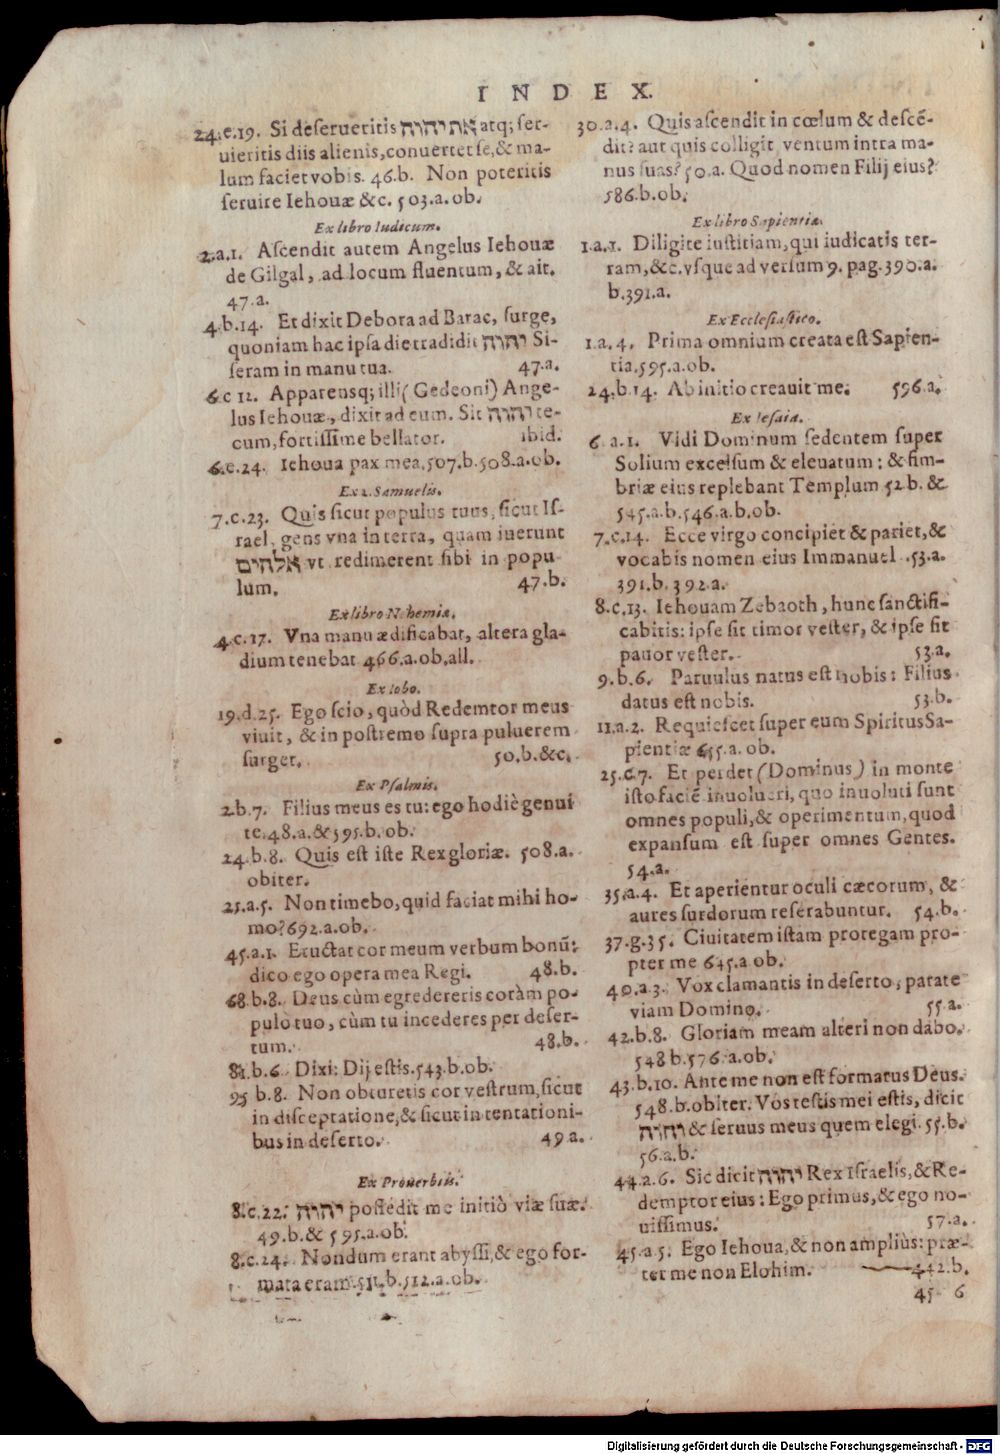 INDEX.
24.e.19. Si deserueritis את יהוה atq; ser-
uieritis diis alienis, conuertet se, & ma-
lum faciet vobis. 46.b. Non poteritis
seruire Iehouæ &c. 503.a.ob.
Ex libro Iudicum.
2.a.1. Ascendit autem Angelus Iehouæ
de Gilgal, ad locum fluentum, & ait.
47.a.
4.b.14. Et dixit Debora ad Barac, surge,
quoniam hac ipsa die tradidit יהוה Si-
seram in manu tua. 47.a.
6.c 12. Apparensq; illi (Gedeoni) Ange-
lus Iehouæ, dixit ad eum. Sit יהוה te-
cum, fortissime bellator. ibid.
6.e.24. Iehoua pax mea, 507.b.508.a.ob.
Ex 2. Samuelis.
7.c.23. Quis sicut populus tuus, sicut Is-
rael, gens vna in terra, quam iuerunt
אלהים vt redimerent sibi in popu
lum. 47.b.
Ex libro Nehemiæ.
4.c.17. Vna manu ædificabat, altera gla-
dium tenebat 466.a.ob.all.
Ex Iobo.
19.d.25. Ego scio, quòd Redemtor meus
viuit, & in postremo supra puluerem
surget. 50.b.&c.
Ex Psalmis.
2.b.7. Filius meus es tu: ego hodiè genui
te. 48.a.& 595.b.ob.
24.b.8. Quis est iste Rex gloriæ. 508.a.
obiter.
25.a.5. Non timebo, quid faciat mihi ho-
mo? 692.a.ob.
45.a.1. Eructat cor meum verbum bonū:
dico ego opera mea Regi. 48.b.
68.b.8. Deus cùm egredereris coràm po-
pulo tuo, cùm tu incederes per deser-
tum. 48.b.
81.b.6 Dixi: Dij estis. 543.b.ob.
95 b.8. Non obturetis cor vestrum, sicut
in disceptatione, & sicut in tentationi-
bus in deserto. 49 a.
Ex Prouerbiis.
8.c.22. יהוה possedit me initiò viæ suæ.
49.b.& 595.a.ob.
8.c.24. Nondum erant abyssi, & ego for-
mata eram. 511.b.512.a.ob.
30.a.4. Quis ascendit in cœlum & descē-
dit? aut quis colligit ventum intra ma-
nus suas? 50.a. Quod nomen Filij eius?
586.b.ob.
Ex libro Sapientiæ.
1.a.1. Diligite iustitiam, qui iudicatis ter-
ram, &c. vsque ad versum 9. pag. 390.a.
b.391.a.
Ex Ecclesiastico.
1.a.4. Prima omnium creata est Sapien-
tia. 595.a.ob.
24.b.14. Ab initio creauit me. 596.a.
Ex Iesaia.
6.a.1. Vidi Dominum sedentem super
Solium excelsum & eleuatum: & fim-
briæ eius replebant Templum 52.b. &
545.a.b.546.a.b.ob.
7.c.14. Ecce virgo concipiet & pariet, &
vocabis nomen eius Immanuel .53.a.
391.b. 392.a.
8.c.13. Iehouam Zebaoth, hunc sanctifi-
cabitis: ipse sit timor vester, & ipse sit
pauor vester. 53.a.
9.b.6. Paruulus natus est nobis: Filius
datus est nobis. 53.b.
11.a.2. Requiescet super eum Spiritus Sa-
pientiæ 655.a. ob.
25.c.7. Et perdet (Dominus) in monte
isto faciē inuolucri, quo inuoluti sunt
omnes populi, & operimentum, quod
expansum est super omnes Gentes.
54.a.
35.a.4. Et aperientur oculi cæcorum, &
aures surdorum reserabuntur. 54.b.
37.g.35. Ciuitatem istam protegam pro-
pter me 645.a ob.
40.a.3. Vox clamantis in deserto, parate
viam Domino. 55.a.
42.b.8. Gloriam meam alteri non dabo.
548 b.576.a.ob.
43.b.10. Ante me non est formatus Deus.
548.b.obiter. Vos testis mei estis, dicit
יהוה & seruus meus quem elegi. 55.b.
56.a.b.
44.a.6. Sic dicit יהוה Rex Israelis, & Re-
demptor eius: Ego primus, & ego no-
uissimus. 57.a.
45.a.5. Ego Iehoua, & non ampliùs: præ-
ter me non Elohim. 442.b.
45 6
Digitalisierung gefördert durch die Deutsche Forschungsgemeinschaft - DFG